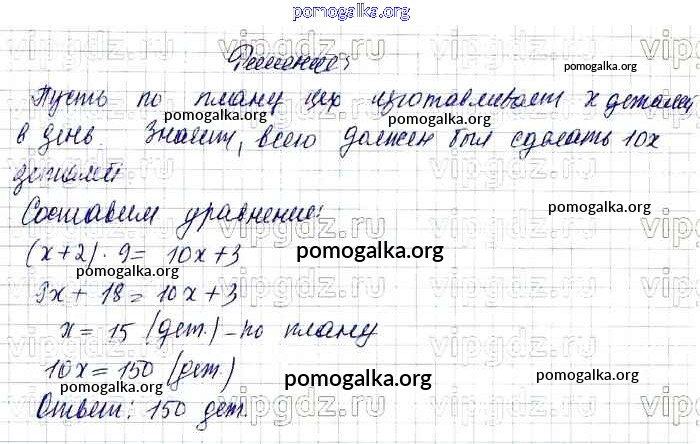 pomogalka.org
Решение:
Пусть по плану цех изготавливает x деталей
в день. Значит, всего должен был сделать 10x
деталей
Составим уравнение:
(x+2)·9= 10x+3
9x + 18 = 10x + 3
x = 15 (дет.) – по плану
10x = 150 (дет.)
Ответ: 150 дет.
pomogalka.org
pomogalka.org
pomogalka.org
pomogalka.org
pomogalka.org
pomogalka.org
pomogalka.org
pomogalka.org
pomogalka.org
vipgdz.ru
vipgdz.ru
vipgdz.ru
vipgdz.ru